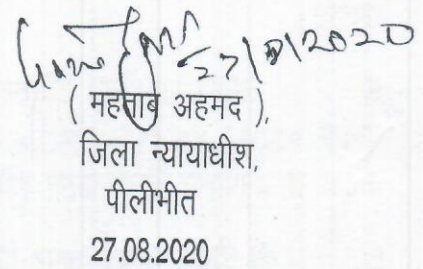 27/8/2020
( महताब अहमद ),
जिला न्यायाधीश,
पीलीभीत
27.08.2020